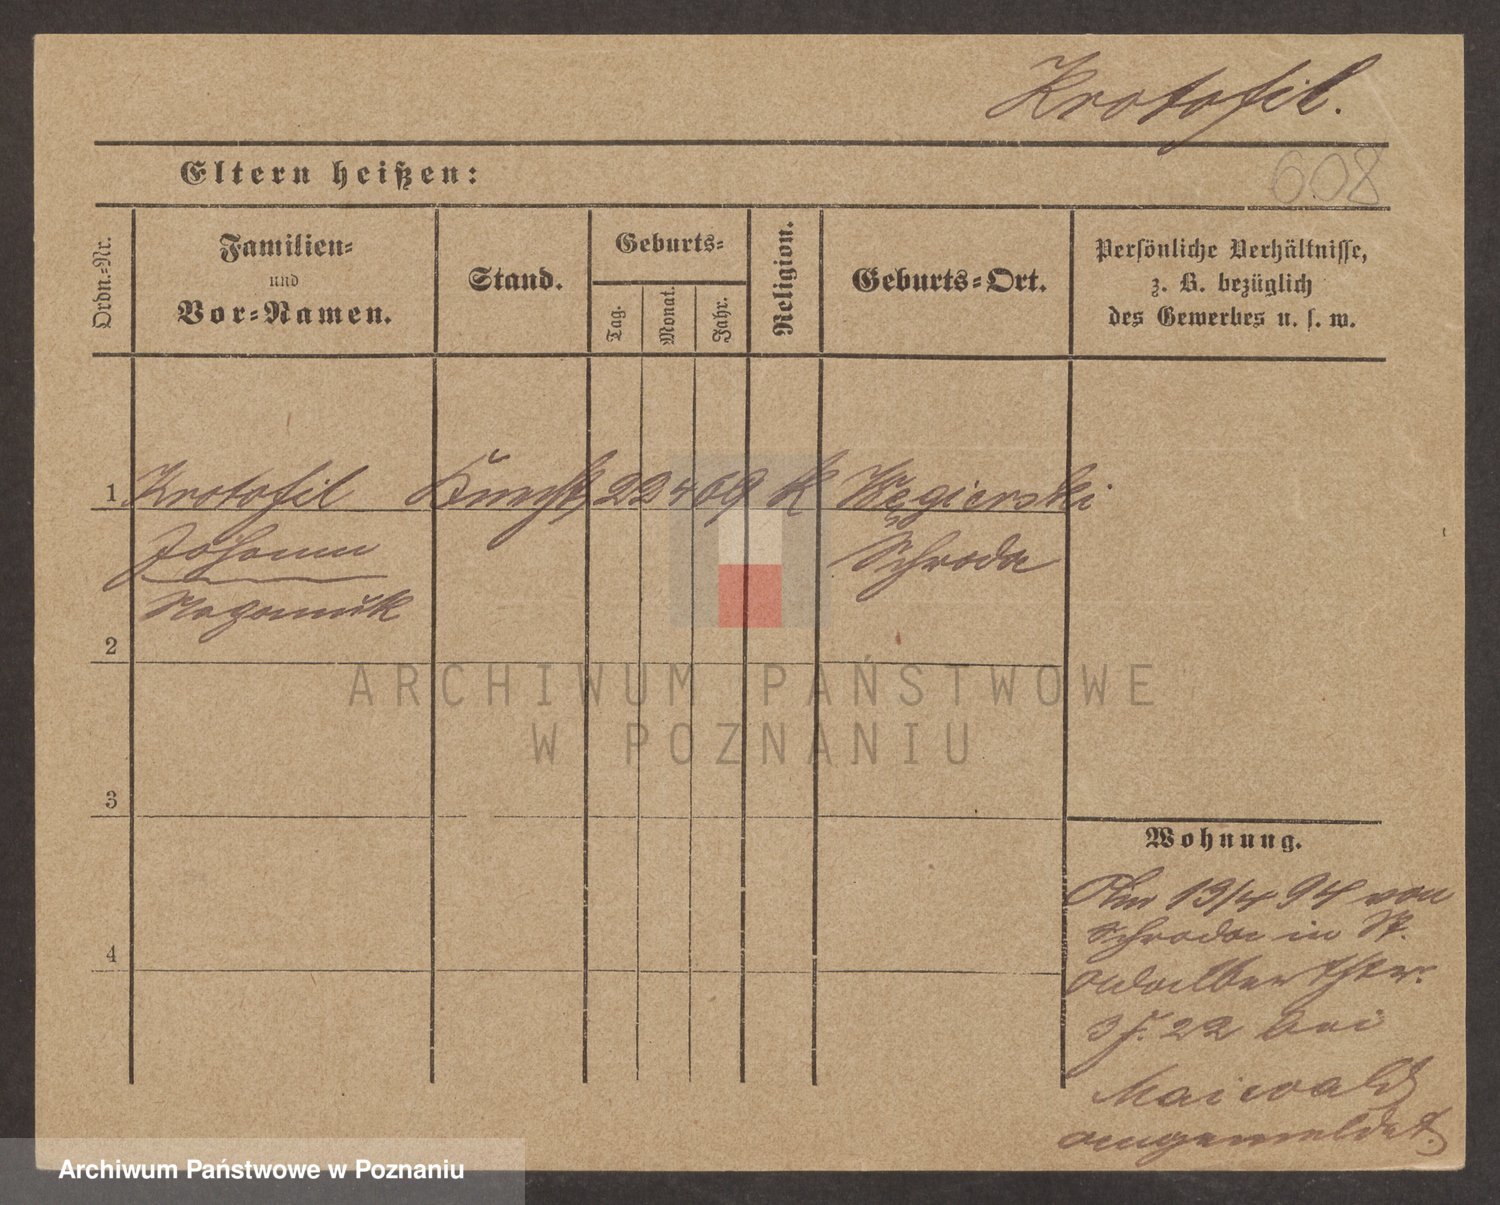 Krotofil.
608
Eltern heißen:
Ordn.-Nr.
Familien-
und
Vor-Namen.
Stand.
Geburts-
Tag.
Monat.
Jahr.
Religion.
Geburts-Ort.
Persönliche Verhältnisse,
z. B. bezüglich
des Gewerbes u. s. w.
1 Krotofil Knecht 22 4 69 K Węgierski
Johann Schroda
Nepomuk
2
3
4
ARCHIWUM PAŃSTWOWE
W POZNANIU
Wohnung.
Am 19/4 94 von
Schroda in St.
Adalbertstr.
22 bei
Maiwald
angemeldet.
Archiwum Państwowe w Poznaniu